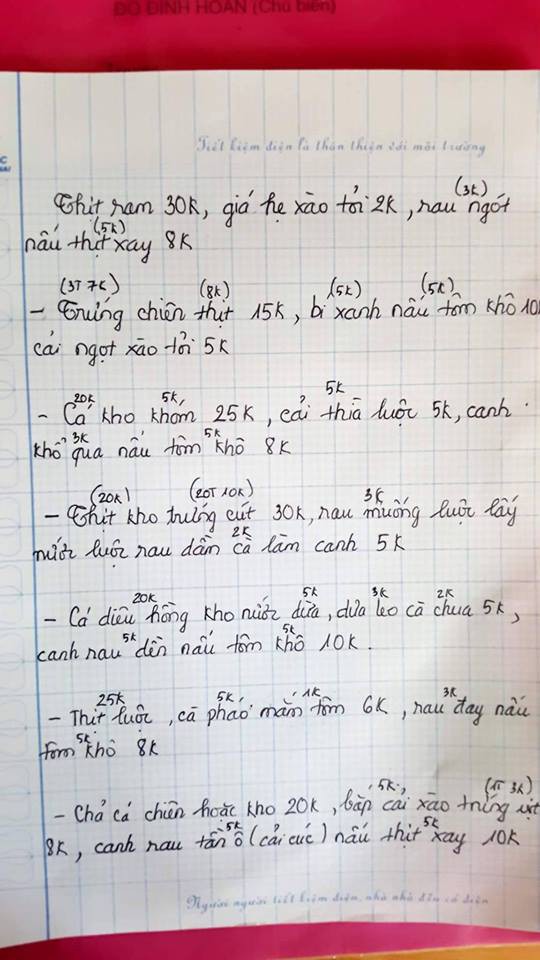 ĐỖ ĐÌNH HOAN (Chủ biên)
Tiết kiệm điện là thân thiện với môi trường
(3K)
Thịt ram 30K, giá hẹ xào tỏi 2K, rau ngót
(5K)
nấu thịt xay 8K
(3T 7K) (8K) (5K) (5K)
- Trứng chiên thịt 15K, bí xanh nấu tôm khô 10K
cải ngọt xào tỏi 5K
20K 5K 5K
- Cá kho khóm 25K, cải thìa luộc 5K, canh
3K 5K
khổ qua nấu tôm khô 8K
(20K) (20T 10K) 3K
- Thịt kho trứng cút 30K, rau muống luộc lấy
2K
nước luộc rau dầm cà làm canh 5K
20K 5K 3K 2K
- Cá diêu hồng kho nước dừa, dưa leo cà chua 5K,
5K 5K
canh rau dền nấu tôm khô 10K.
25K 5K 1K 3K
- Thịt luộc, cà pháo mắm tôm 6K, rau đay nấu
5K
tôm khô 8K
5K (1T 3K)
- Chả cá chiên hoặc kho 20K, bắp cải xào trứng vịt
5K 5K
8K, canh rau tần ô (cải cúc) nấu thịt xay 10K
Người người tiết kiệm điện, nhà nhà đều có điện